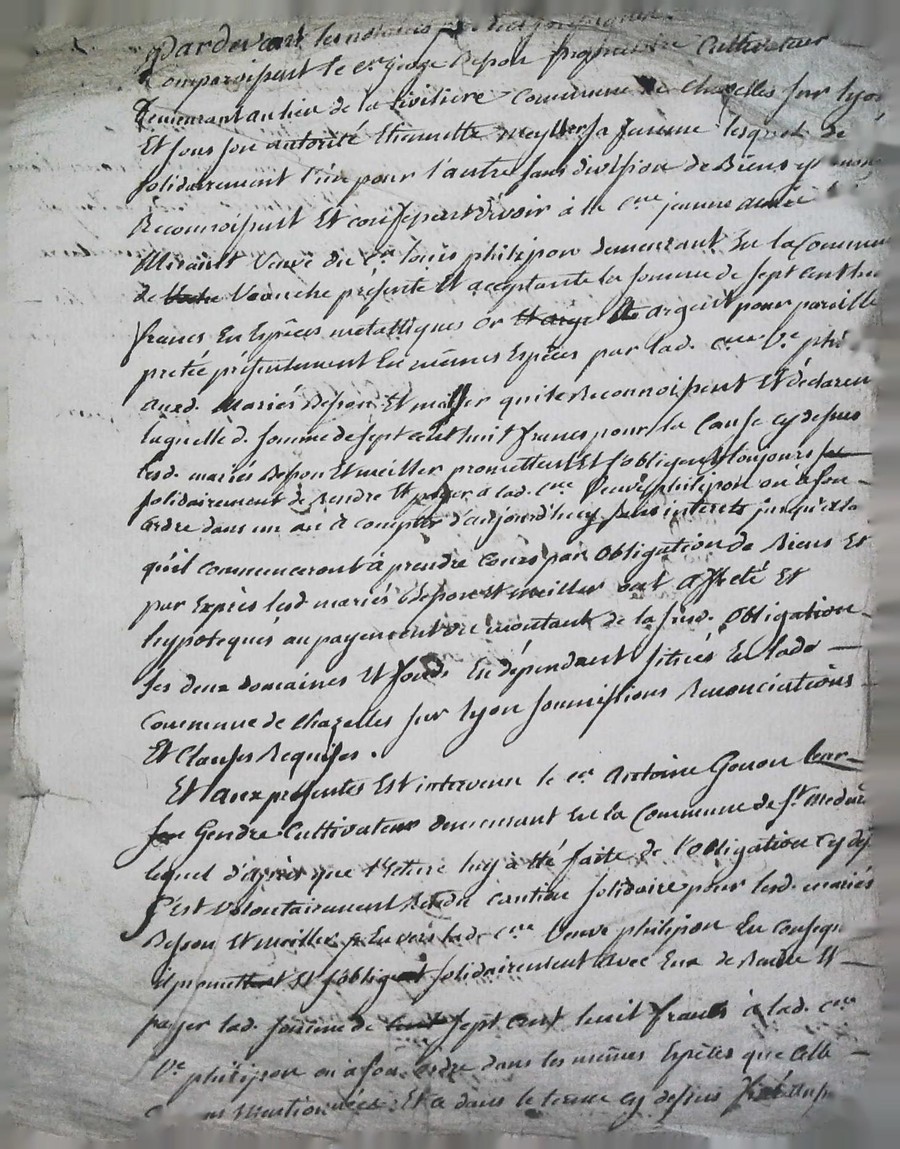 Pardevant les notaires
Comparoissent le cen George Besson propriétaire Cultivateur
demeurant au lieu de la commune de Chazelles sur lyon
Et sous son autorité meyller sa femme lesquels de
solidairement l'un pour l'autre sans division de Biens
Reconnoissent Et confessent devoir à la cne jeanne
Mirault Veuve du cen louis philipon demeurant En la Commune
de Veauche présente Et acceptante la somme de sept cent huit
francs En Espèces métalliques or argent pour pareille
pretée présentement En mêmes Espèces par lad. cne Ve phi
auxd. Mariés Besson Et meiller qui le Reconnoissent Et declarent
laquelle d. somme de sept cent huit francs pour la Cause cy dessus
lesd. mariés Besson Et meiller promettent Et s'obligent toujours
solidairement de Rendre Et payer à lad. cne Veuve philipon ou à son
ordre dans un an à compter d'aujourd'huy sans interets jusqu'alors
qu'il commenceront à prendre Cours par Obligation de Biens Et
par Exprès lesd mariés Besson Et meiller ont affecté Et
hypotequés au payement du montant de la susd. Obligation
ses deux domaines Et fonds En dépendant situés En lade
Commune de Chazelles sur lyon soumissions Renonciations
Et Clauses Requises.
Et aux présentes Est intervenu le cen Antoine Gonon leur
Gendre Cultivateur demeurant En la Commune de St Medard
lequel d'après que lecture luy a été faite de l'Obligation cy dessus
s'est Volontairement Rendu caution solidaire pour lesd. mariés
Besson Et meiller Envers lade cne Veuve philipon En conseq
il promet Et s'oblige solidairement avec Eux de Rendre Et
payer lad. somme de sept cent huit francs à lad. cne
Ve philipon ou à son ordre dans les mêmes Espèces que Celle
mentionnées Et dans le terme cy dessus